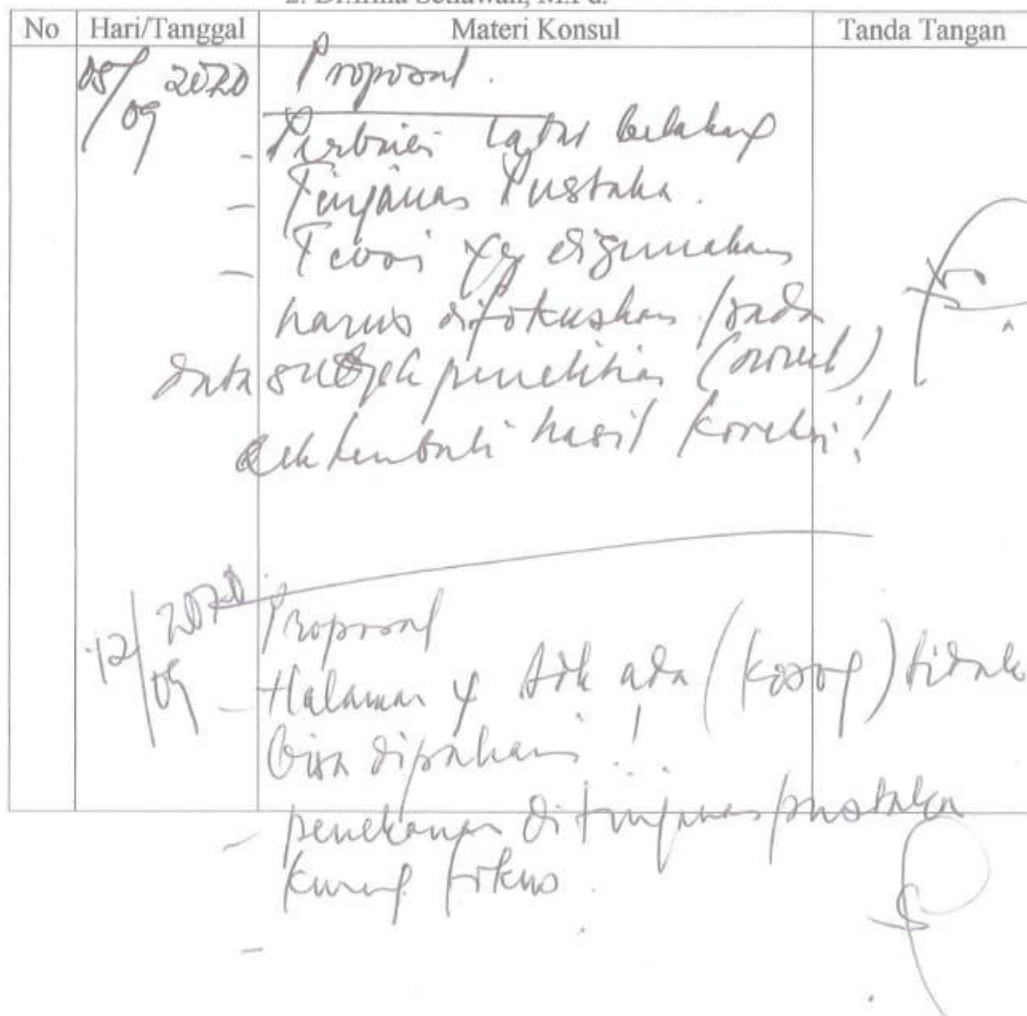 2. Dr.Arina Setiawan, M.Pd.
No Hari/Tanggal Materi Konsul Tanda Tangan
08/09 2020 Proposal.
- Perbaiki latar belakang
- Tinjauan Pustaka.
- Teori yg digunakan
harus difokuskan pada
data subjek penelitian (novel)
cek kembali hasil koreksi!
12/09 2020 Proposal
- Halaman 4 tdk ada (kosong) tidak
bisa dipahami!
- penekanan di tinjauan pustaka
kurang fokus.
-